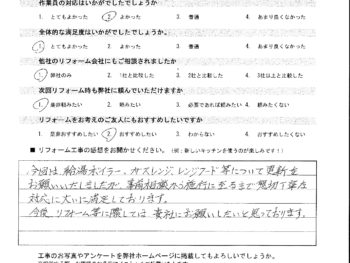 作業員の対応はいかがでしたでしょうか。
1. とてもよかった 2. よかった 3. 普通 4. あまり良くなかった
全体的な満足度はいかがでしたでしょうか。
1. とてもよかった 2. よかった 3. 普通 4. あまり良くなかった
他社のリフォーム会社にもご相談されましたか
1. 弊社のみ 2. 1社と比較した 3. 2社と比較した 4. 3社以上と比較した
次回リフォーム時も弊社に頼んでいただけますか
1. 是非頼みたい 2. 頼みたい 3. 必要であれば頼みたい 4. 頼みたくない
リフォームをお考えのご友人にもおすすめしたいですか
1. 是非おすすめしたい 2. おすすめしたい 3. わからない 4. おすすめしたくない
■ リフォーム工事の感想をお聞かせください。(例:新しいキッチンが使うのが楽しみです!)
今回は給湯ボイラー、ガスレンジ、レンジフード等について更新を
お願いいたしましたが、事前相談から施行に至るまで懇切丁寧な
対応に大いに満足しております。
今後、リフォーム等に際しては貴社にお願いしたいと思っております。
工事のお写真やアンケートを弊社ホームページに掲載してもよろしいでしょうか。